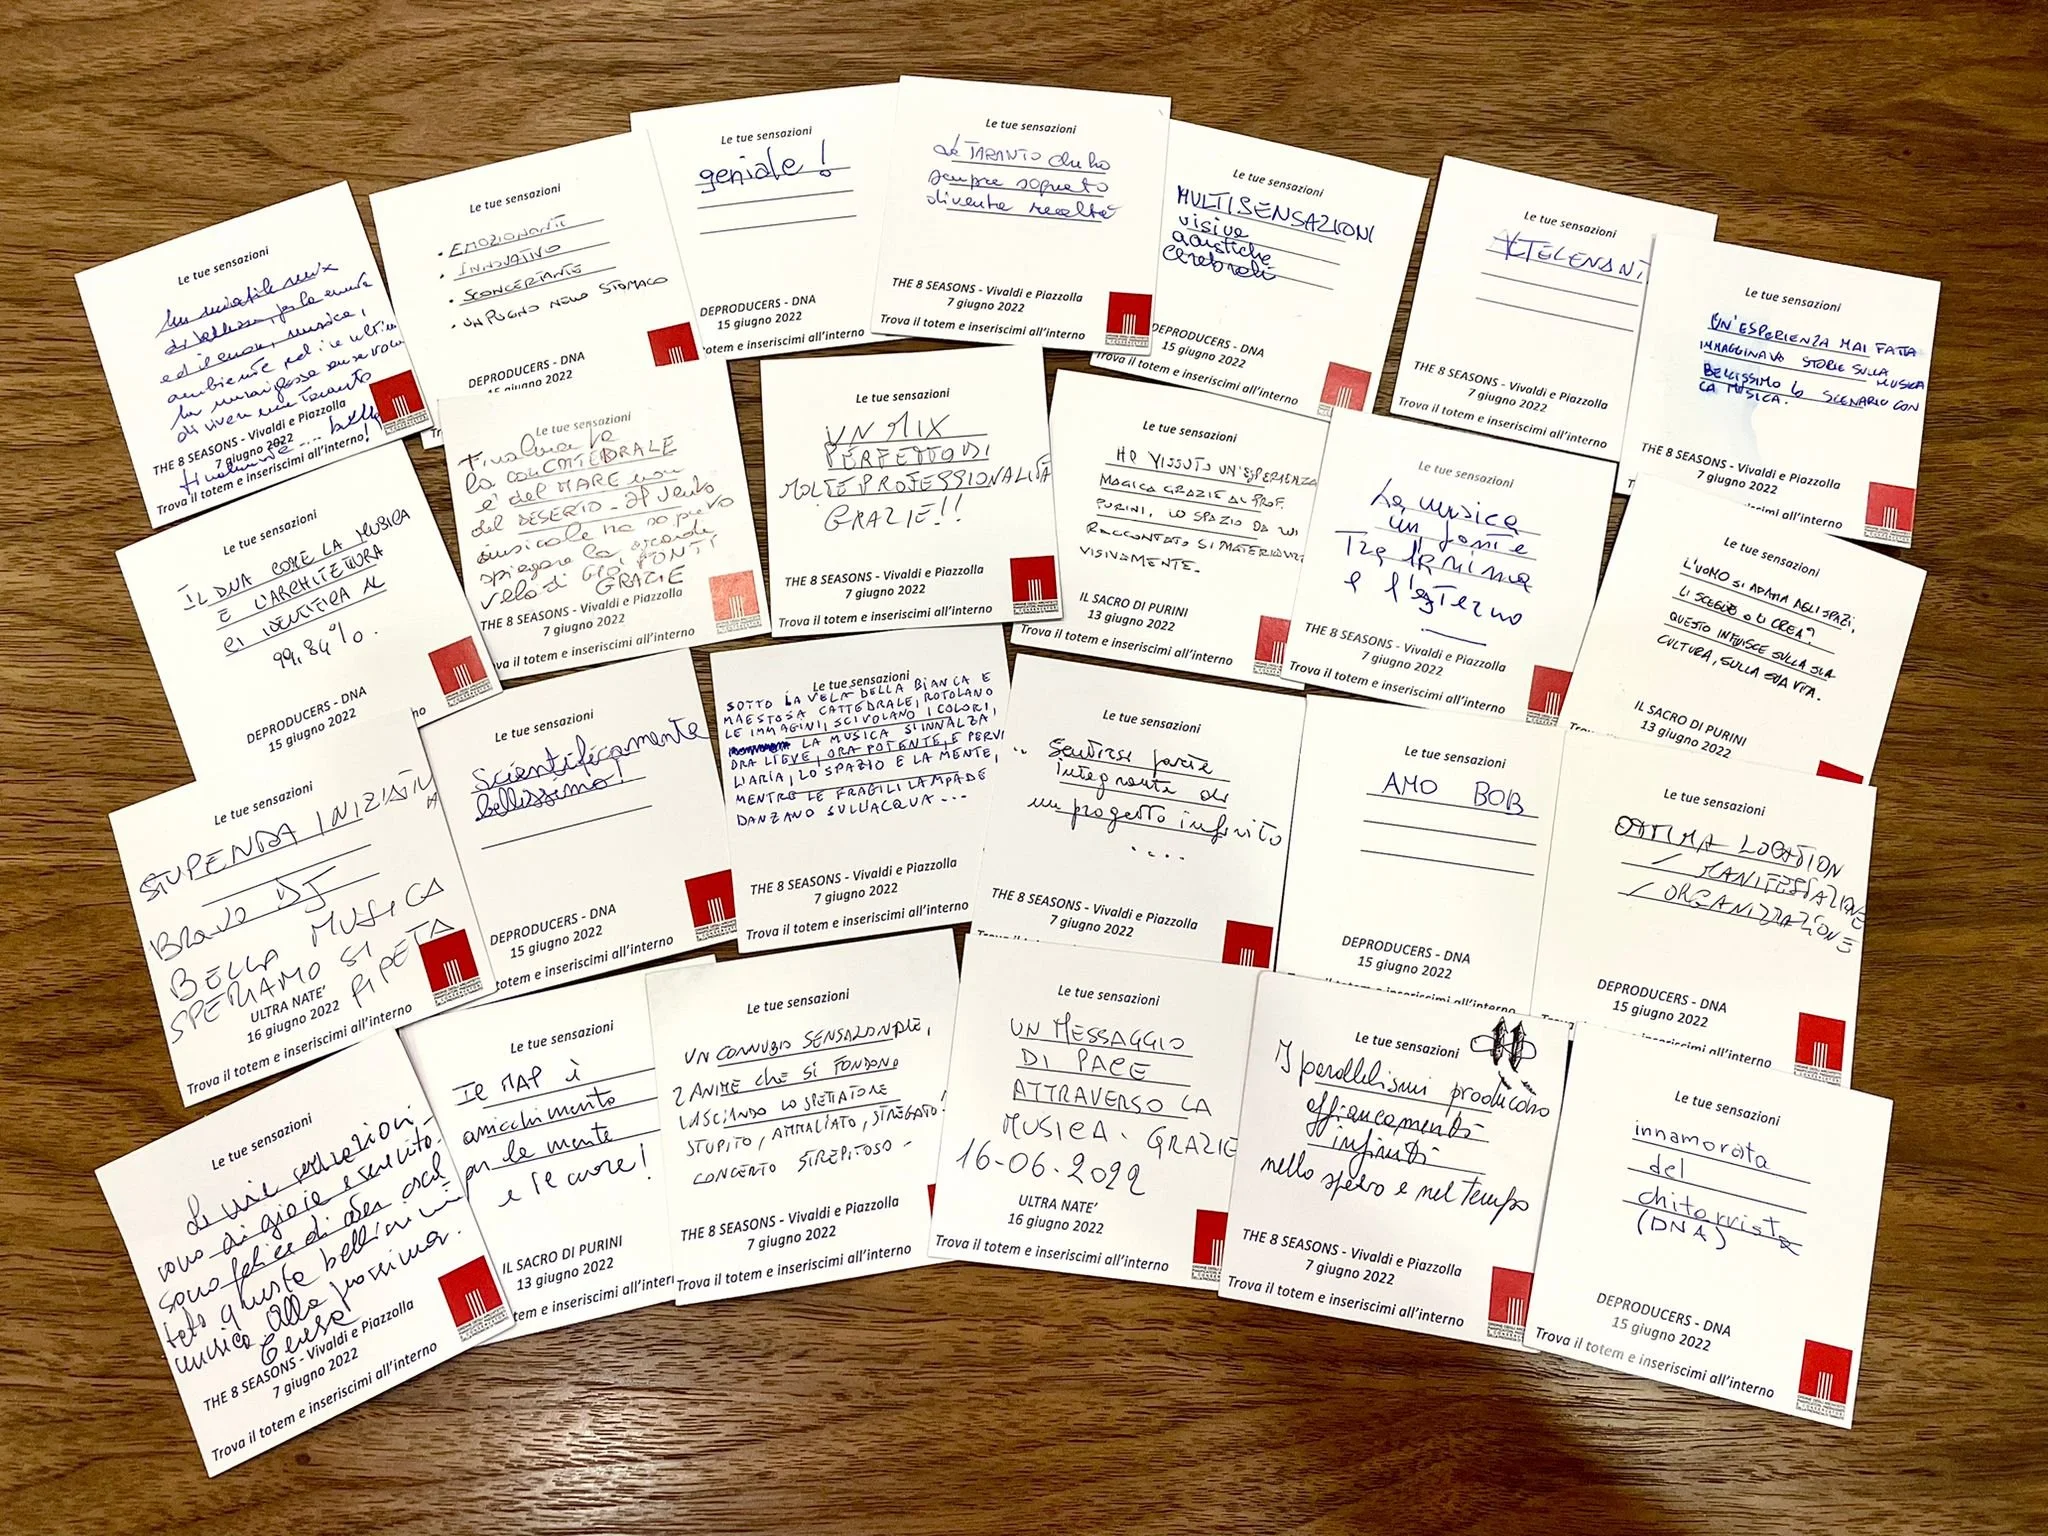 Le tue sensazioni
Un miscela mix
di bellezza, per la mente
ed il cuore, musica,
ambiente ed
diviene Taranto
THE 8 SEASONS - Vivaldi e Piazzolla
7 giugno 2022
... bella
finalmente!
Trova il totem e inseriscimi all'interno
Le tue sensazioni
• EMOZIONANTE
• INNOVATIVO
• SCONCERTANTE
• UN PUGNO NELLO STOMACO
DEPRODUCERS - DNA
15 giugno 2022
Le tue sensazioni
geniale!
DEPRODUCERS - DNA
15 giugno 2022
totem e inseriscimi all'interno
Le tue sensazioni
La TARANTO che ho
sempre sognato
diventa realtà
THE 8 SEASONS - Vivaldi e Piazzolla
7 giugno 2022
Trova il totem e inseriscimi all'interno
Le tue sensazioni
MULTISENSAZIONI
visive
acustiche
cerebrali
DEPRODUCERS - DNA
15 giugno 2022
Trova il totem e inseriscimi all'interno
Le tue sensazioni
THE 8 SEASONS - Vivaldi e Piazzolla
7 giugno 2022
Trova il totem e inseriscimi all'interno
Le tue sensazioni
UN'ESPERIENZA MAI FATTA
IMMAGINAVO STORIE SULLA MUSICA
BELLISSIMO LO SCENARIO CON
LA MUSICA.
THE 8 SEASONS - Vivaldi e Piazzolla
7 giugno 2022
Trova il totem e inseriscimi all'interno
Le tue sensazioni
IL DNA COME LA MUSICA
E L'ARCHITETTURA
CI IDENTIFICA AL
99,84%.
DEPRODUCERS - DNA
15 giugno 2022
Le tue sensazioni
Finalmente
la conCATTEDRALE
è del MARE non
del DESERTO - Il vento
musicale ha saputo
spiegare la grande
vela di GIO PONTI
GRAZIE
THE 8 SEASONS - Vivaldi e Piazzolla
7 giugno 2022
Trova il totem e inseriscimi all'interno
Le tue sensazioni
UN MIX
PERFETTO DI
MOLTE PROFESSIONALITÀ
GRAZIE!!
THE 8 SEASONS - Vivaldi e Piazzolla
7 giugno 2022
Trova il totem e inseriscimi all'interno
Le tue sensazioni
HO VISSUTO UN'ESPERIENZA
MAGICA GRAZIE AL PROF.
PURINI, LO SPAZIO DA LUI
RACCONTATO SI MATERIALIZZA
VISIVAMENTE.
IL SACRO DI PURINI
13 giugno 2022
Trova il totem e inseriscimi all'interno
Le tue sensazioni
La musica
un ponte
Tra l'anima
e l'esterno
THE 8 SEASONS - Vivaldi e Piazzolla
7 giugno 2022
Trova il totem e inseriscimi all'interno
Le tue sensazioni
L'UOMO SI ADATTA AGLI SPAZI,
LI SCEGLIE O LI CREA?
QUESTO INFLUISCE SULLA SUA
CULTURA, SULLA SUA VITA.
IL SACRO DI PURINI
13 giugno 2022
Le tue sensazioni
STUPENDA INIZIATIVA
Bravo DJ
BELLA MUSICA
SPERIAMO SI
RIPETA
ULTRA NATE'
16 giugno 2022
Trova il totem e inseriscimi all'interno
Le tue sensazioni
Scientificamente
bellissimo!
DEPRODUCERS - DNA
15 giugno 2022
totem e inseriscimi all'interno
Le tue sensazioni
SOTTO LA VELA DELLA BIANCA E
MAESTOSA CATTEDRALE, ROTOLANO
LE IMMAGINI, SCIVOLANO I COLORI,
LA MUSICA S'INNALZA,
ORA LIEVE, ORA POTENTE, E PERVADE
L'ARIA, LO SPAZIO E LA MENTE,
MENTRE LE FRAGILI LAMPADE
DANZANO SULL'ACQUA ...
THE 8 SEASONS - Vivaldi e Piazzolla
7 giugno 2022
Trova il totem e inseriscimi all'interno
Le tue sensazioni
... Sentirsi parte
integrante di
un progetto infinito
....
THE 8 SEASONS - Vivaldi e Piazzolla
7 giugno 2022
Le tue sensazioni
AMO BOB
DEPRODUCERS - DNA
15 giugno 2022
Trova il totem e inseriscimi all'interno
Le tue sensazioni
OTTIMA LOCATION
/ MANIFESTAZIONE
/ ORGANIZZAZIONE
DEPRODUCERS - DNA
15 giugno 2022
Trova il totem e inseriscimi all'interno
Le tue sensazioni
Le mie sensazioni
sono di gioia e serenità.
sono felice di aver ascol
tato questa bellissima
musica alla prossima.
THE 8 SEASONS - Vivaldi e Piazzolla
7 giugno 2022
Trova il totem e inseriscimi all'interno
Le tue sensazioni
Il MAP è
arricchimento
per la mente
e il cuore!
IL SACRO DI PURINI
13 giugno 2022
totem e inseriscimi all'interno
Le tue sensazioni
UN CONNUBIO SENSAZIONALE,
2 ANIME CHE SI FONDONO
LASCIANDO LO SPETTATORE
STUPITO, AMMALIATO, STREGATO!
CONCERTO STREPITOSO -
THE 8 SEASONS - Vivaldi e Piazzolla
7 giugno 2022
Trova il totem e inseriscimi all'interno
Le tue sensazioni
UN MESSAGGIO
DI PACE
ATTRAVERSO LA
MUSICA. GRAZIE
16-06-2022
ULTRA NATE'
16 giugno 2022
Trova il totem e inseriscimi all'interno
Le tue sensazioni
I parallelismi producono
affiancamenti
infiniti
nello spazio e nel tempo
THE 8 SEASONS - Vivaldi e Piazzolla
7 giugno 2022
Trova il totem e inseriscimi all'interno
Le tue sensazioni
innamorata
del
chitarrista
(DNA)
DEPRODUCERS - DNA
15 giugno 2022
Trova il totem e inseriscimi all'interno